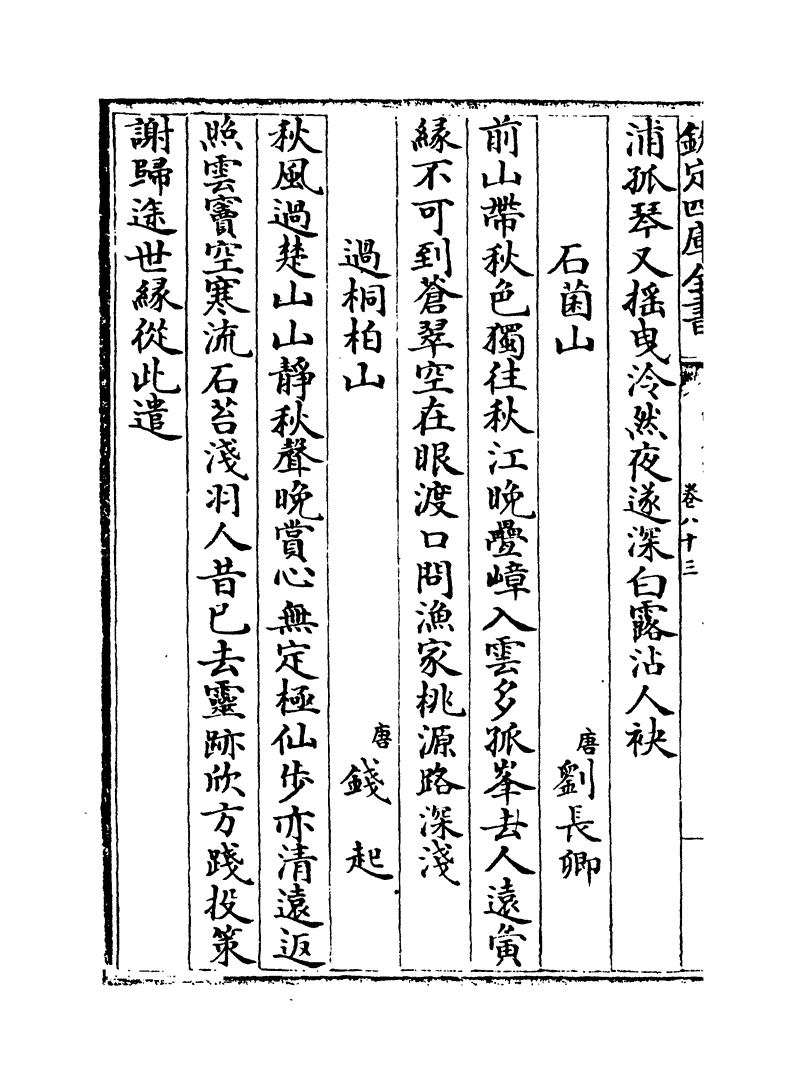 欽定四庫全書
卷八十三
浦孤琴又揺曳泠然夜遂深白露沾人袂
石菌山 唐 劉長卿
前山帶秋色獨往秋江晚疊嶂入雲多孤峯去人遠夤
縁不可到蒼翠空在眼渡口問漁家桃源路深淺
過桐柏山 唐 錢起
秋風過楚山山靜秋聲晚賞心無定極仙步亦清遠返
照雲竇空寒流石苔淺羽人昔已去靈跡欣方踐投策
謝歸途世縁從此遣